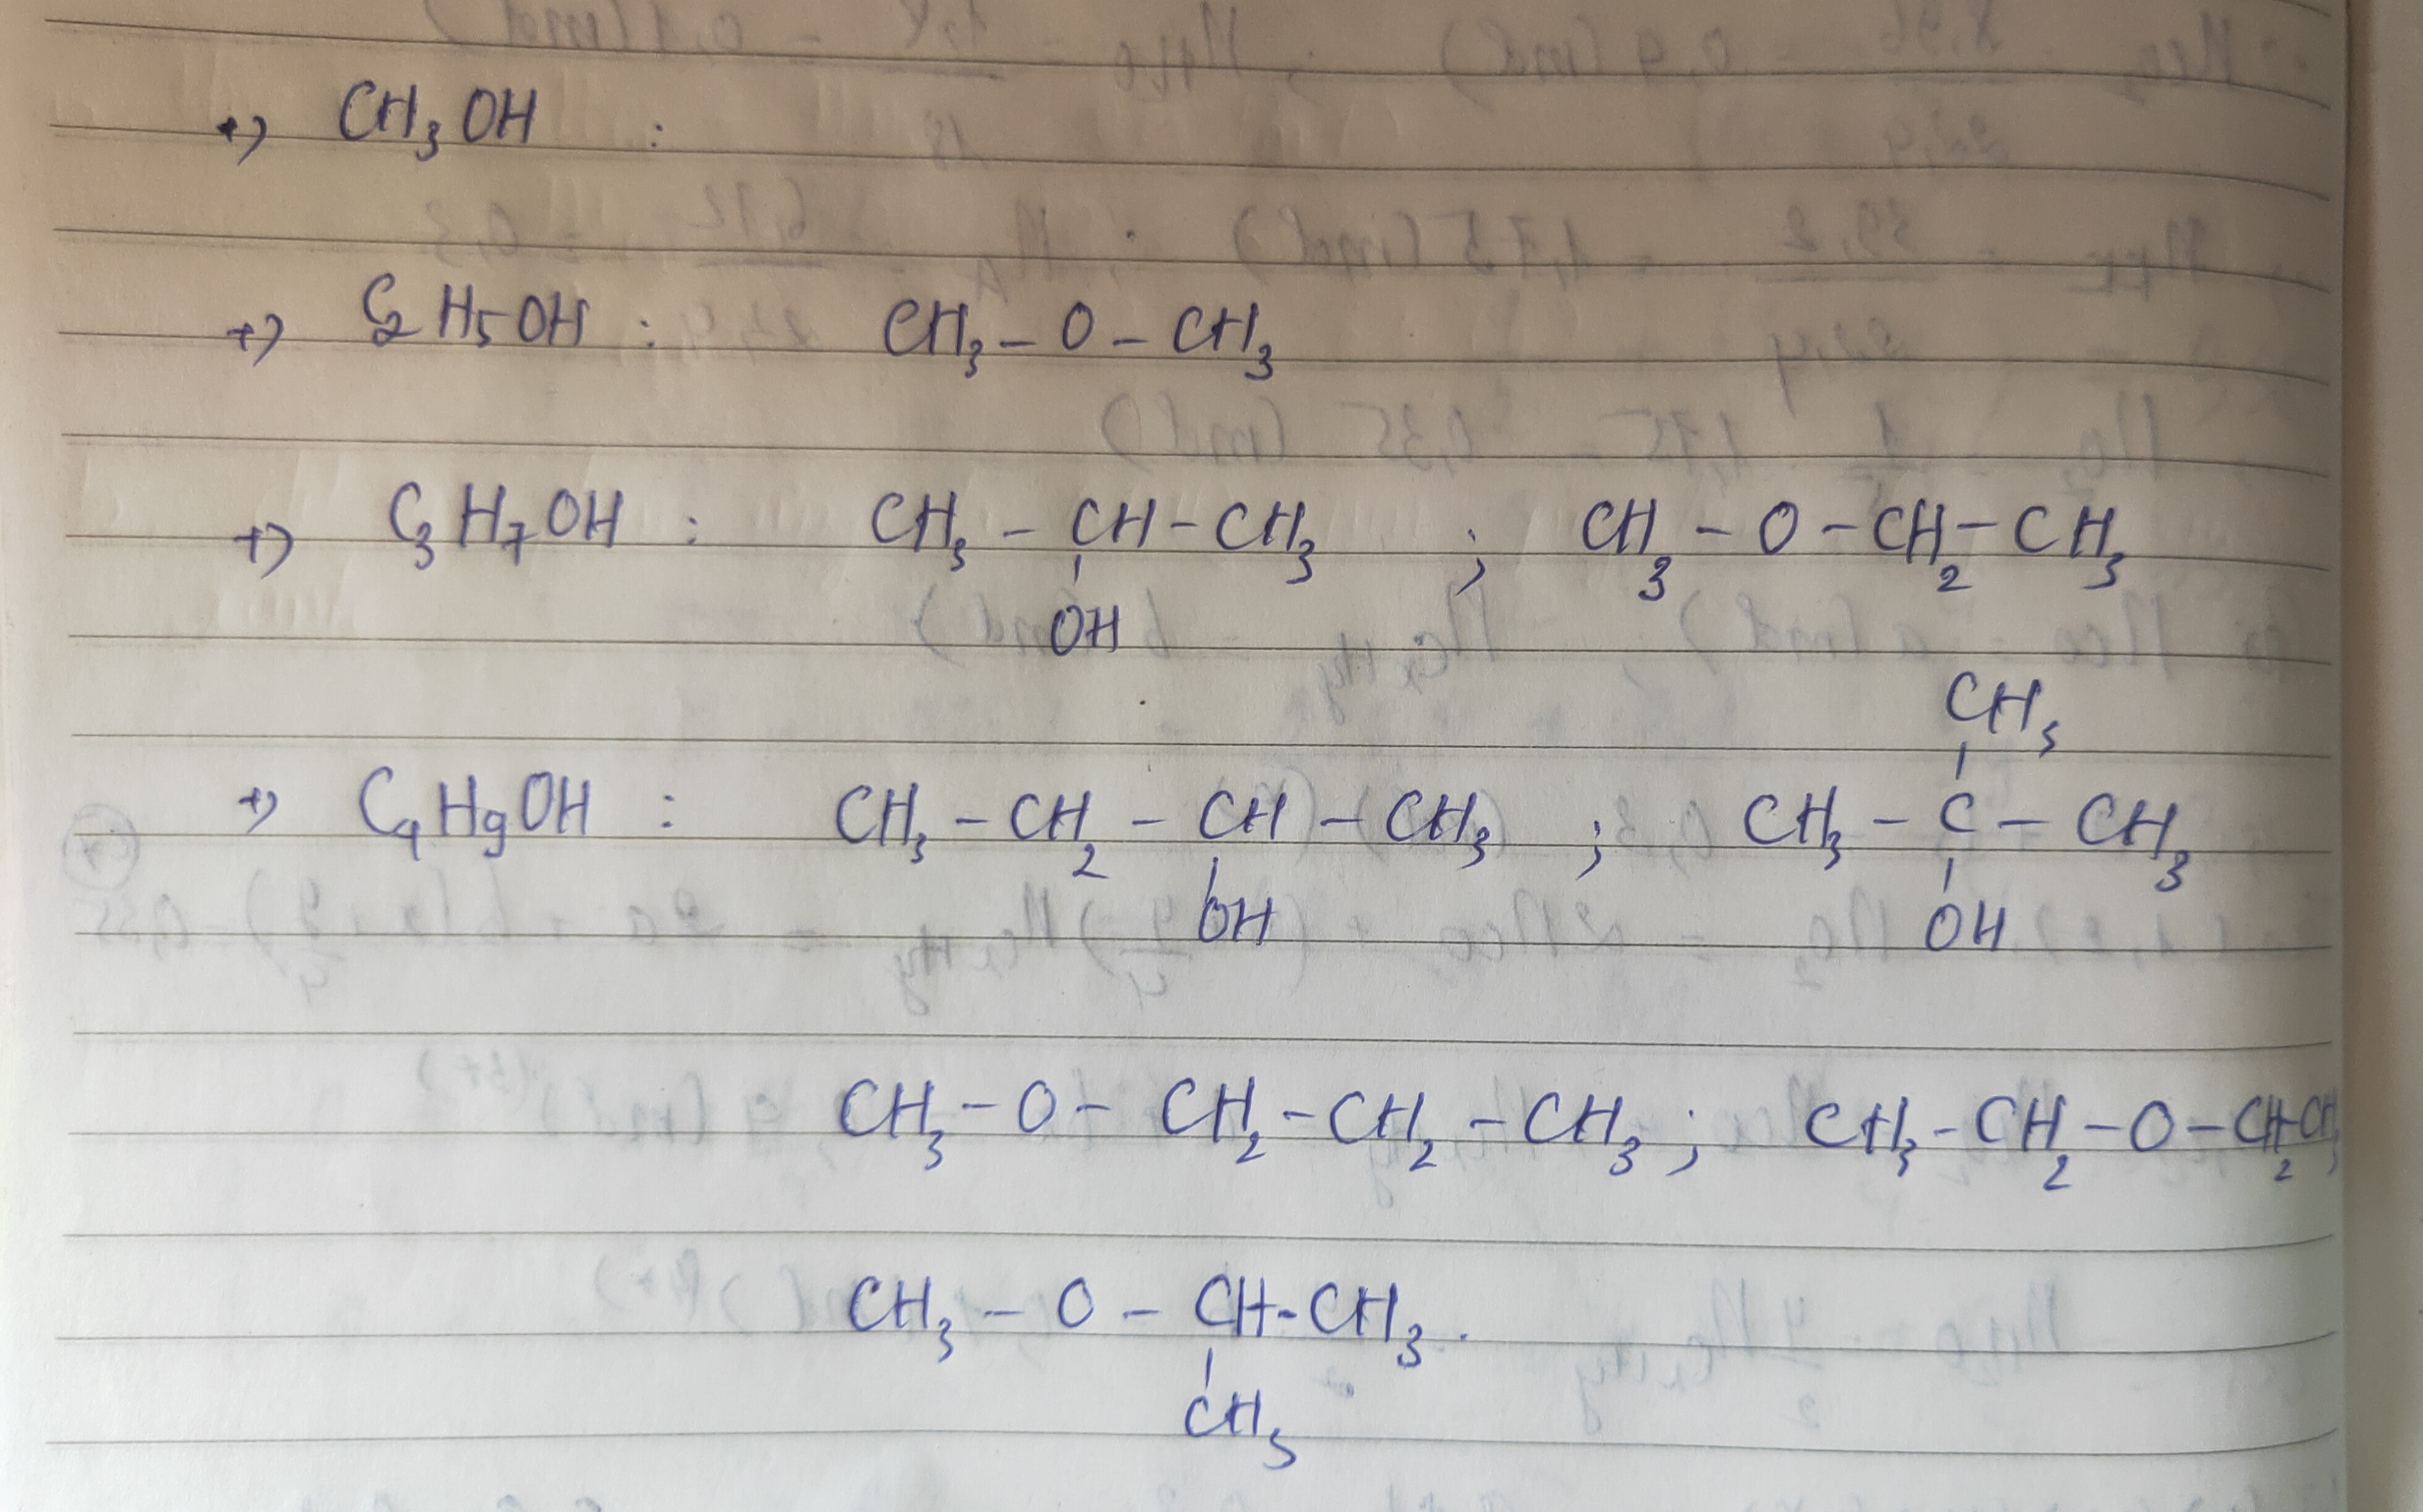 +) CH₃OH :
+) C₂H₅OH : CH₃ – O – CH₃
+) C₃H₇OH : CH₃ – CH – CH₃ ; CH₃ – O – CH₂ – CH₃
OH
CH₃
+) C₄H₉OH : CH₃ – CH₂ – CH – CH₃ ; CH₃ – C – CH₃
OH OH
CH₃ – O – CH₂ – CH₂ – CH₃ ; CH₃ – CH₂ – O – CH₂ – CH₃
CH₃ – O – CH – CH₃.
CH₃